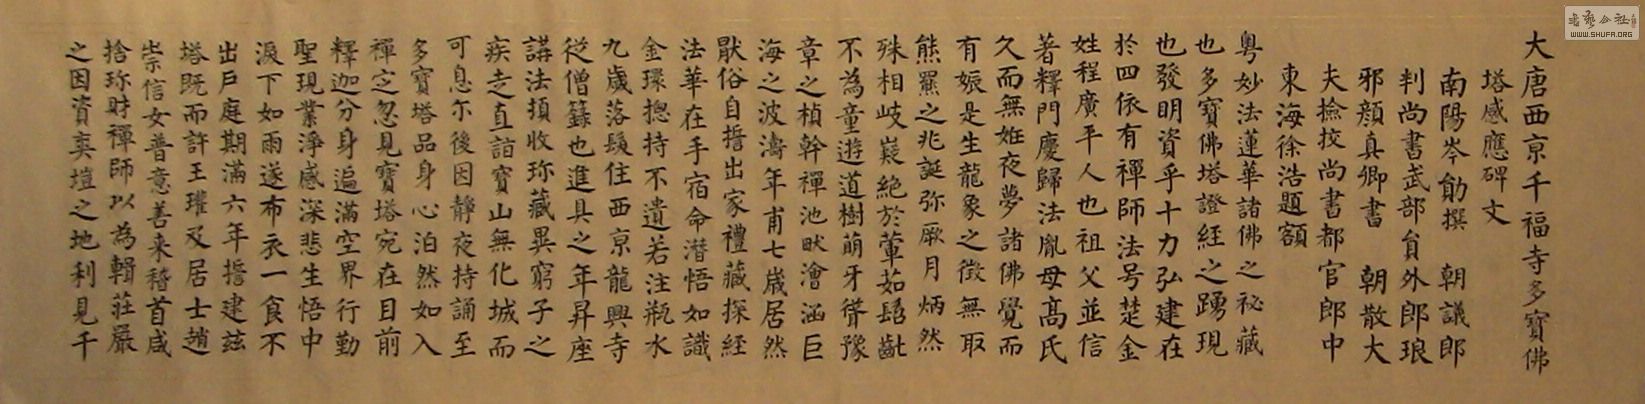 大唐西京千福寺多寶佛
塔感應碑文
南陽岑勛撰 朝議郎
判尚書武部員外郎琅
邪顏真卿書 朝散大
夫撿挍尚書都官郎中
東海徐浩題額
粵妙法蓮華諸佛之祕藏
也多寶佛塔證經之踴現
也發明資乎十力弘建在
於四依有禪師法号楚金
姓程廣平人也祖父並信
著釋門慶歸法胤母高氏
久而無姙夜夢諸佛覺而
有娠是生龍象之徵無取
熊羆之兆誕弥厥月炳然
殊相岐嶷絕於葷茹髫齓
不為童遊道樹萌牙聳豫
章之楨幹禪池畎澮涵巨
海之波濤年甫七歲居然
猒俗自誓出家禮藏探經
法華在手宿命潛悟如識
金環揔持不遺若注瓶水
九歲落髮住西京龍興寺
從僧籙也進具之年昇座
講法頓收珎藏異窮子之
疾走直詣寶山無化城而
可息尔後因靜夜持誦至
多寶塔品身心泊然如入
禪定忽見寶塔宛在目前
釋迦分身遍滿空界行勤
聖現業淨感深悲生悟中
淚下如雨遂布衣一食不
出戶庭期滿六年誓建茲
塔既而許王瓘及居士趙
崇信女普意善来稽首咸
捨珎財禪師以為輯莊嚴
之因資爽塏之地利見千
書藝公社
WWW.SHUFA.ORG